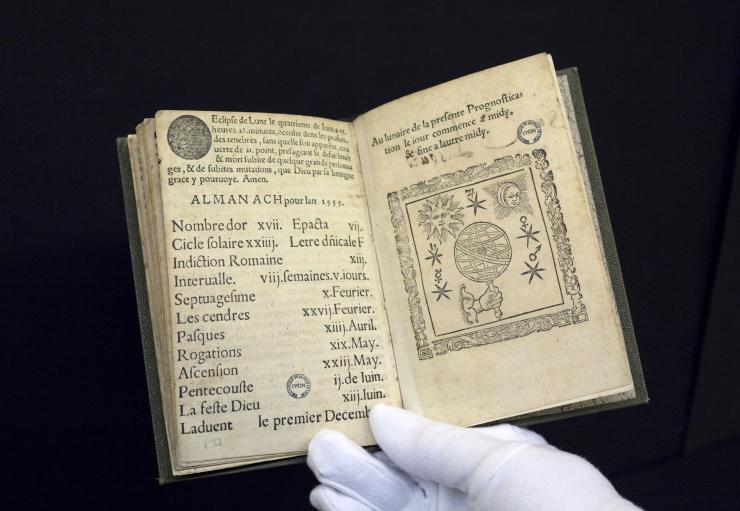 Eclipse de Lune le quatrieme de Iuin a 15.
heures. 21. minutes, occulte dens les profun-
des tenebres, sans quelle soit apparẽte, cou
uerte de 11. point, presageant le definement
& mort subite de quelque grands personna
ges, & de subites mutations, que Dieu par sa benigne
grace y pouruoye. Amen.
ALMANACH pour lan 1555.
Nombre dor xvii. Epacta vij.
Cicle solaire xxiiij. Letre dñicale F
Indiction Romaine xiij.
Interualle. viij.semaines.v.iours.
Septuagesime x.Feurier.
Les cendres xxvij.Feurier.
Pasques xiiij.Auril.
Rogations xix.May.
Ascension xxiij.May.
Pentecouste ij.de Iuin.
La feste Dieu xiij.Iuin.
Laduent le premier Decemb
LYON
Au lunaire de la presente Prognostica-
tion le iour commence a midy,
& fine a lautre midy.
LYON